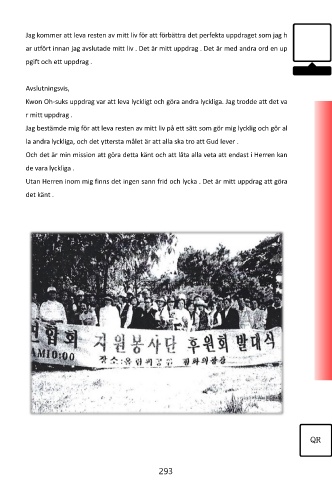 Jag kommer att leva resten av mitt liv för att förbättra det perfekta uppdraget som jag h
ar utfört innan jag avslutade mitt liv . Det är mitt uppdrag . Det är med andra ord en up
pgift och ett uppdrag .
Avslutningsvis,
Kwon Oh-suks uppdrag var att leva lyckligt och göra andra lyckliga. Jag trodde att det va
r mitt uppdrag .
Jag bestämde mig för att leva resten av mitt liv på ett sätt som gör mig lycklig och gör al
la andra lyckliga, och det yttersta målet är att alla ska tro att Gud lever .
Och det är min mission att göra detta känt och att låta alla veta att endast i Herren kan
de vara lyckliga .
Utan Herren inom mig finns det ingen sann frid och lycka . Det är mitt uppdrag att göra
det känt .
연합회 지원봉사단 후원회 발대식
AM10:00 장소:올림픽공원 평화의광장
QR
293